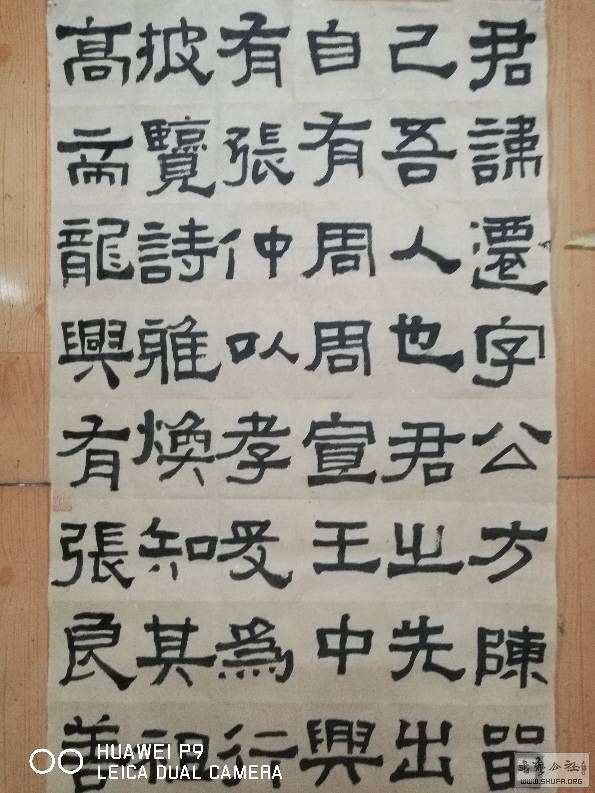 君諱遷字公方陳留
己吾人也君之先出
自有周周宣王中興
有張仲以孝友為行
披覽詩雅煥知其祖
高帝龍興有張良善
HUAWEI P9
LEICA DUAL CAMERA
书法公社
WWW.SHUFA.ORG